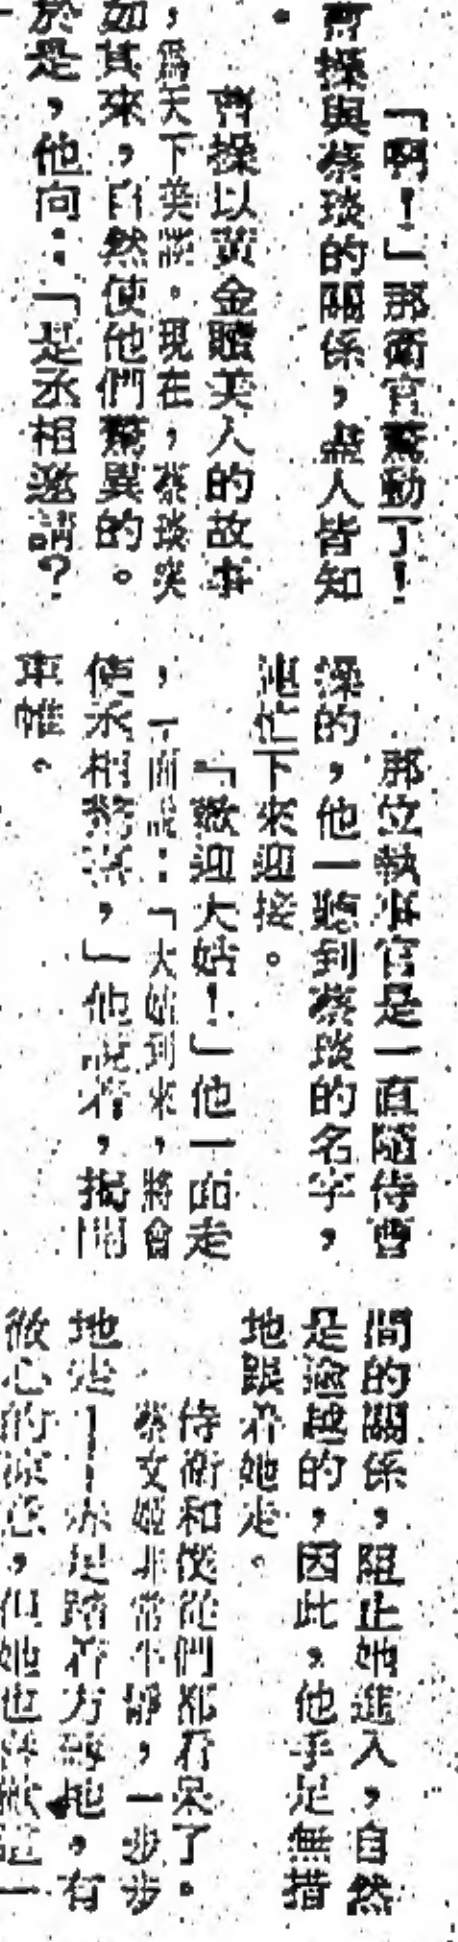 「啊！」那衛官驚動了！
曹操與蔡琰的關係，盡人皆知
。
曹操以黃金贖美人的故事
，爲天下美談。現在，蔡琰突
如其來，自然使他們驚異的。
於是，他向：「是丞相邀請？
那位執事官是一直隨侍曹
操的，他一聽到蔡琰的名字，
連忙下來迎接。
「歡迎大姑！」他一面走
，一面說：「大姑到來，將會
使丞相驚喜，」他說着，揭開
車帷。
間的關係，阻止她進入，自然
是逾越的，因此，他手足無措
地跟着她走。
侍衛和僕從們都看呆了。
蔡文姬非常平靜，一步步
地走——亦是踏着方磚地，有
微心的涼意，但她也